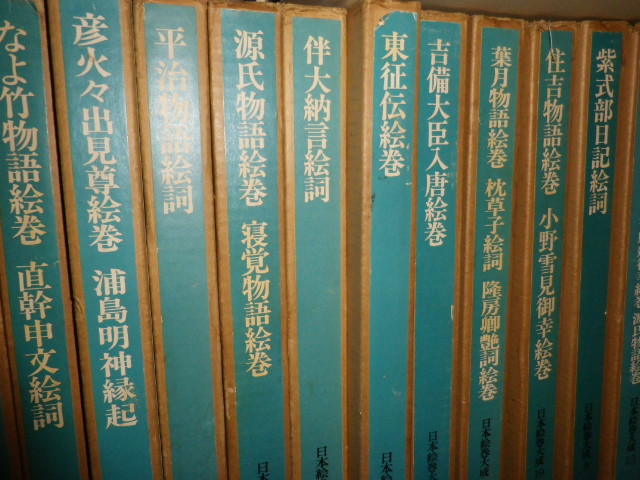 なよ竹物語絵巻 直幹申文絵詞
彦火々出見尊絵巻 浦島明神縁起
平治物語絵詞
源氏物語絵巻 寝覚物語絵巻
日本絵
伴大納言絵詞
日本絵巻
東征伝絵巻
日本絵巻大
吉備大臣入唐絵巻
日本絵巻大成
葉月物語絵巻 枕草子絵詞 隆房卿艶詞絵巻
日本絵巻大成
住吉物語絵巻 小野雪見御幸絵巻
日本絵巻大成 19
紫式部日記絵詞
日本絵巻大成 9
源氏物語絵巻
日本絵巻大成